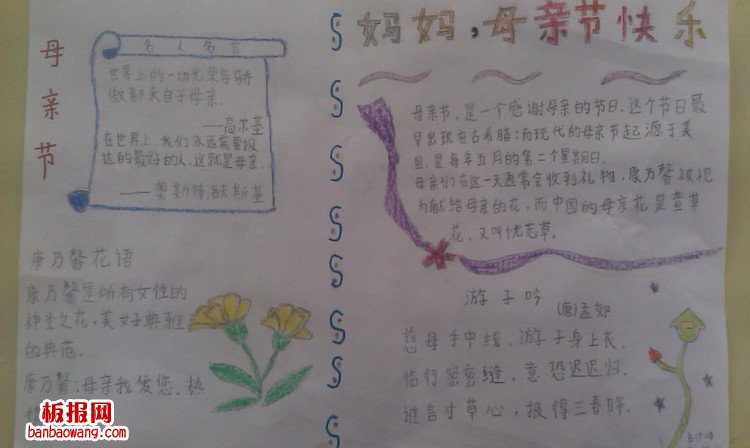 母亲节
名人名言
世界上的一切光荣与骄
傲都来自于母亲.
——高尔基
在世界上,我们永远需要报
达的最好的人,这就是母亲
——奥斯特洛夫斯基
康乃馨花语
康乃馨是所有女性的
神圣之花,美好典雅
的典范.
康乃馨:母亲我爱您、热
妈妈,母亲节快乐
母亲节,是一个感谢母亲的节日.这个节日最
早出现在古希腊;而现代的母亲节起源于美
国,是每年五月的第二个星期日.
母亲们在这一天通常会收到礼物,康乃馨被视
为献给母亲的花,而中国的母亲花是萱草
花,又叫忧忘草.
游子吟
(唐)孟郊
慈母手中线,游子身上衣.
临行密密缝,意恐迟迟归.
谁言寸草心,报得三春晖.
板报网
banbaowang.com